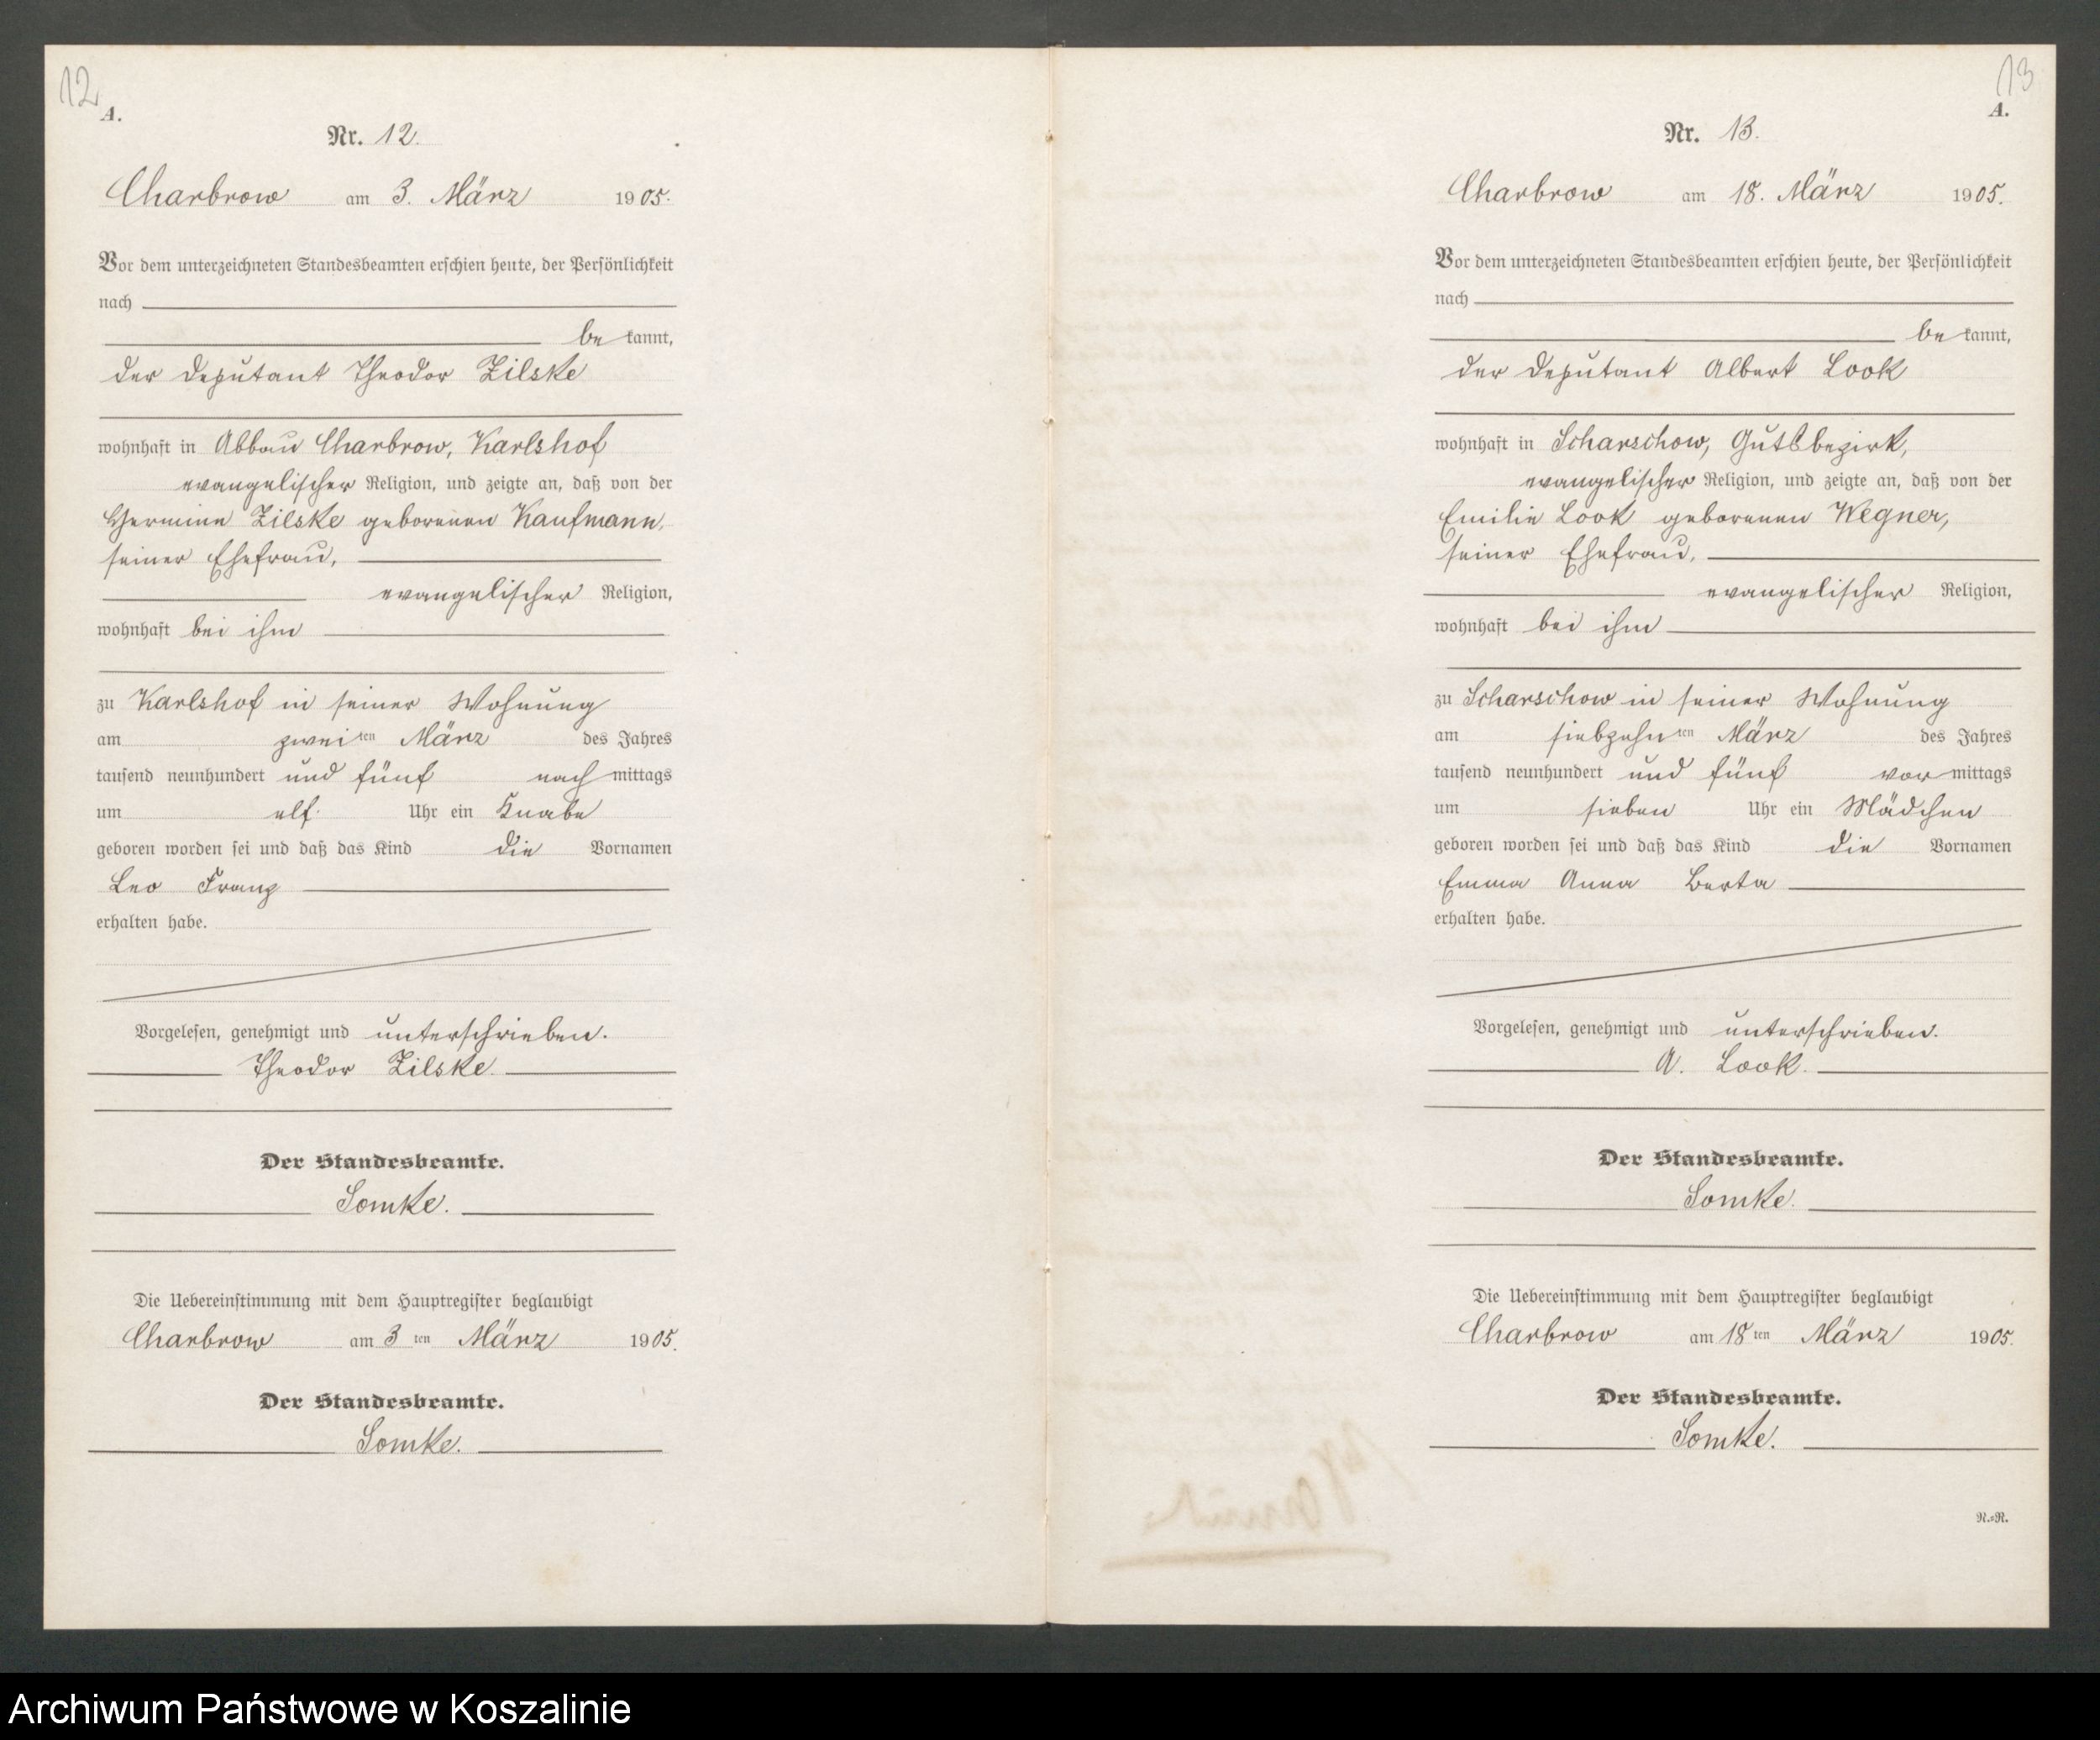 12
A.
Nr. 12.
Charbrow am 3. März 1905.
Vor dem unterzeichneten Standesbeamten erschien heute, der Persönlichkeit
nach
be kannt,
der Deputant Theodor Zilske
wohnhaft in Abbau Charbrow, Karlshof
evangelischer Religion, und zeigte an, daß von der
Hermine Zilske geborenen Kaufmann,
seiner Ehefrau,
evangelischer Religion,
wohnhaft bei ihm
zu Karlshof in seiner Wohnung
am zwei ten März des Jahres
tausend neunhundert und fünf nach mittags
um elf Uhr ein Knabe
geboren worden sei und daß das Kind die Vornamen
Leo Franz
erhalten habe.
Vorgelesen, genehmigt und unterschrieben.
Theodor Zilske.
Der Standesbeamte.
Somke.
Die Uebereinstimmung mit dem Hauptregister beglaubigt
Charbrow am 3 ten März 1905.
Der Standesbeamte.
Somke.
13
A.
Nr. 13.
Charbrow am 18. März 1905.
Vor dem unterzeichneten Standesbeamten erschien heute, der Persönlichkeit
nach
be kannt,
der Deputant Albert Look
wohnhaft in Scharschow, Gutsbezirk,
evangelischer Religion, und zeigte an, daß von der
Emilie Look geborenen Wegner,
seiner Ehefrau,
evangelischer Religion,
wohnhaft bei ihm
zu Scharschow in seiner Wohnung
am siebzehn ten März des Jahres
tausend neunhundert und fünf vor mittags
um sieben Uhr ein Mädchen
geboren worden sei und daß das Kind die Vornamen
Emma Anna Berta
erhalten habe.
Vorgelesen, genehmigt und unterschrieben.
A. Look.
Der Standesbeamte.
Somke.
Die Uebereinstimmung mit dem Hauptregister beglaubigt
Charbrow am 18 ten März 1905.
Der Standesbeamte.
Somke.
N.=R.
Archiwum Państwowe w Koszalinie